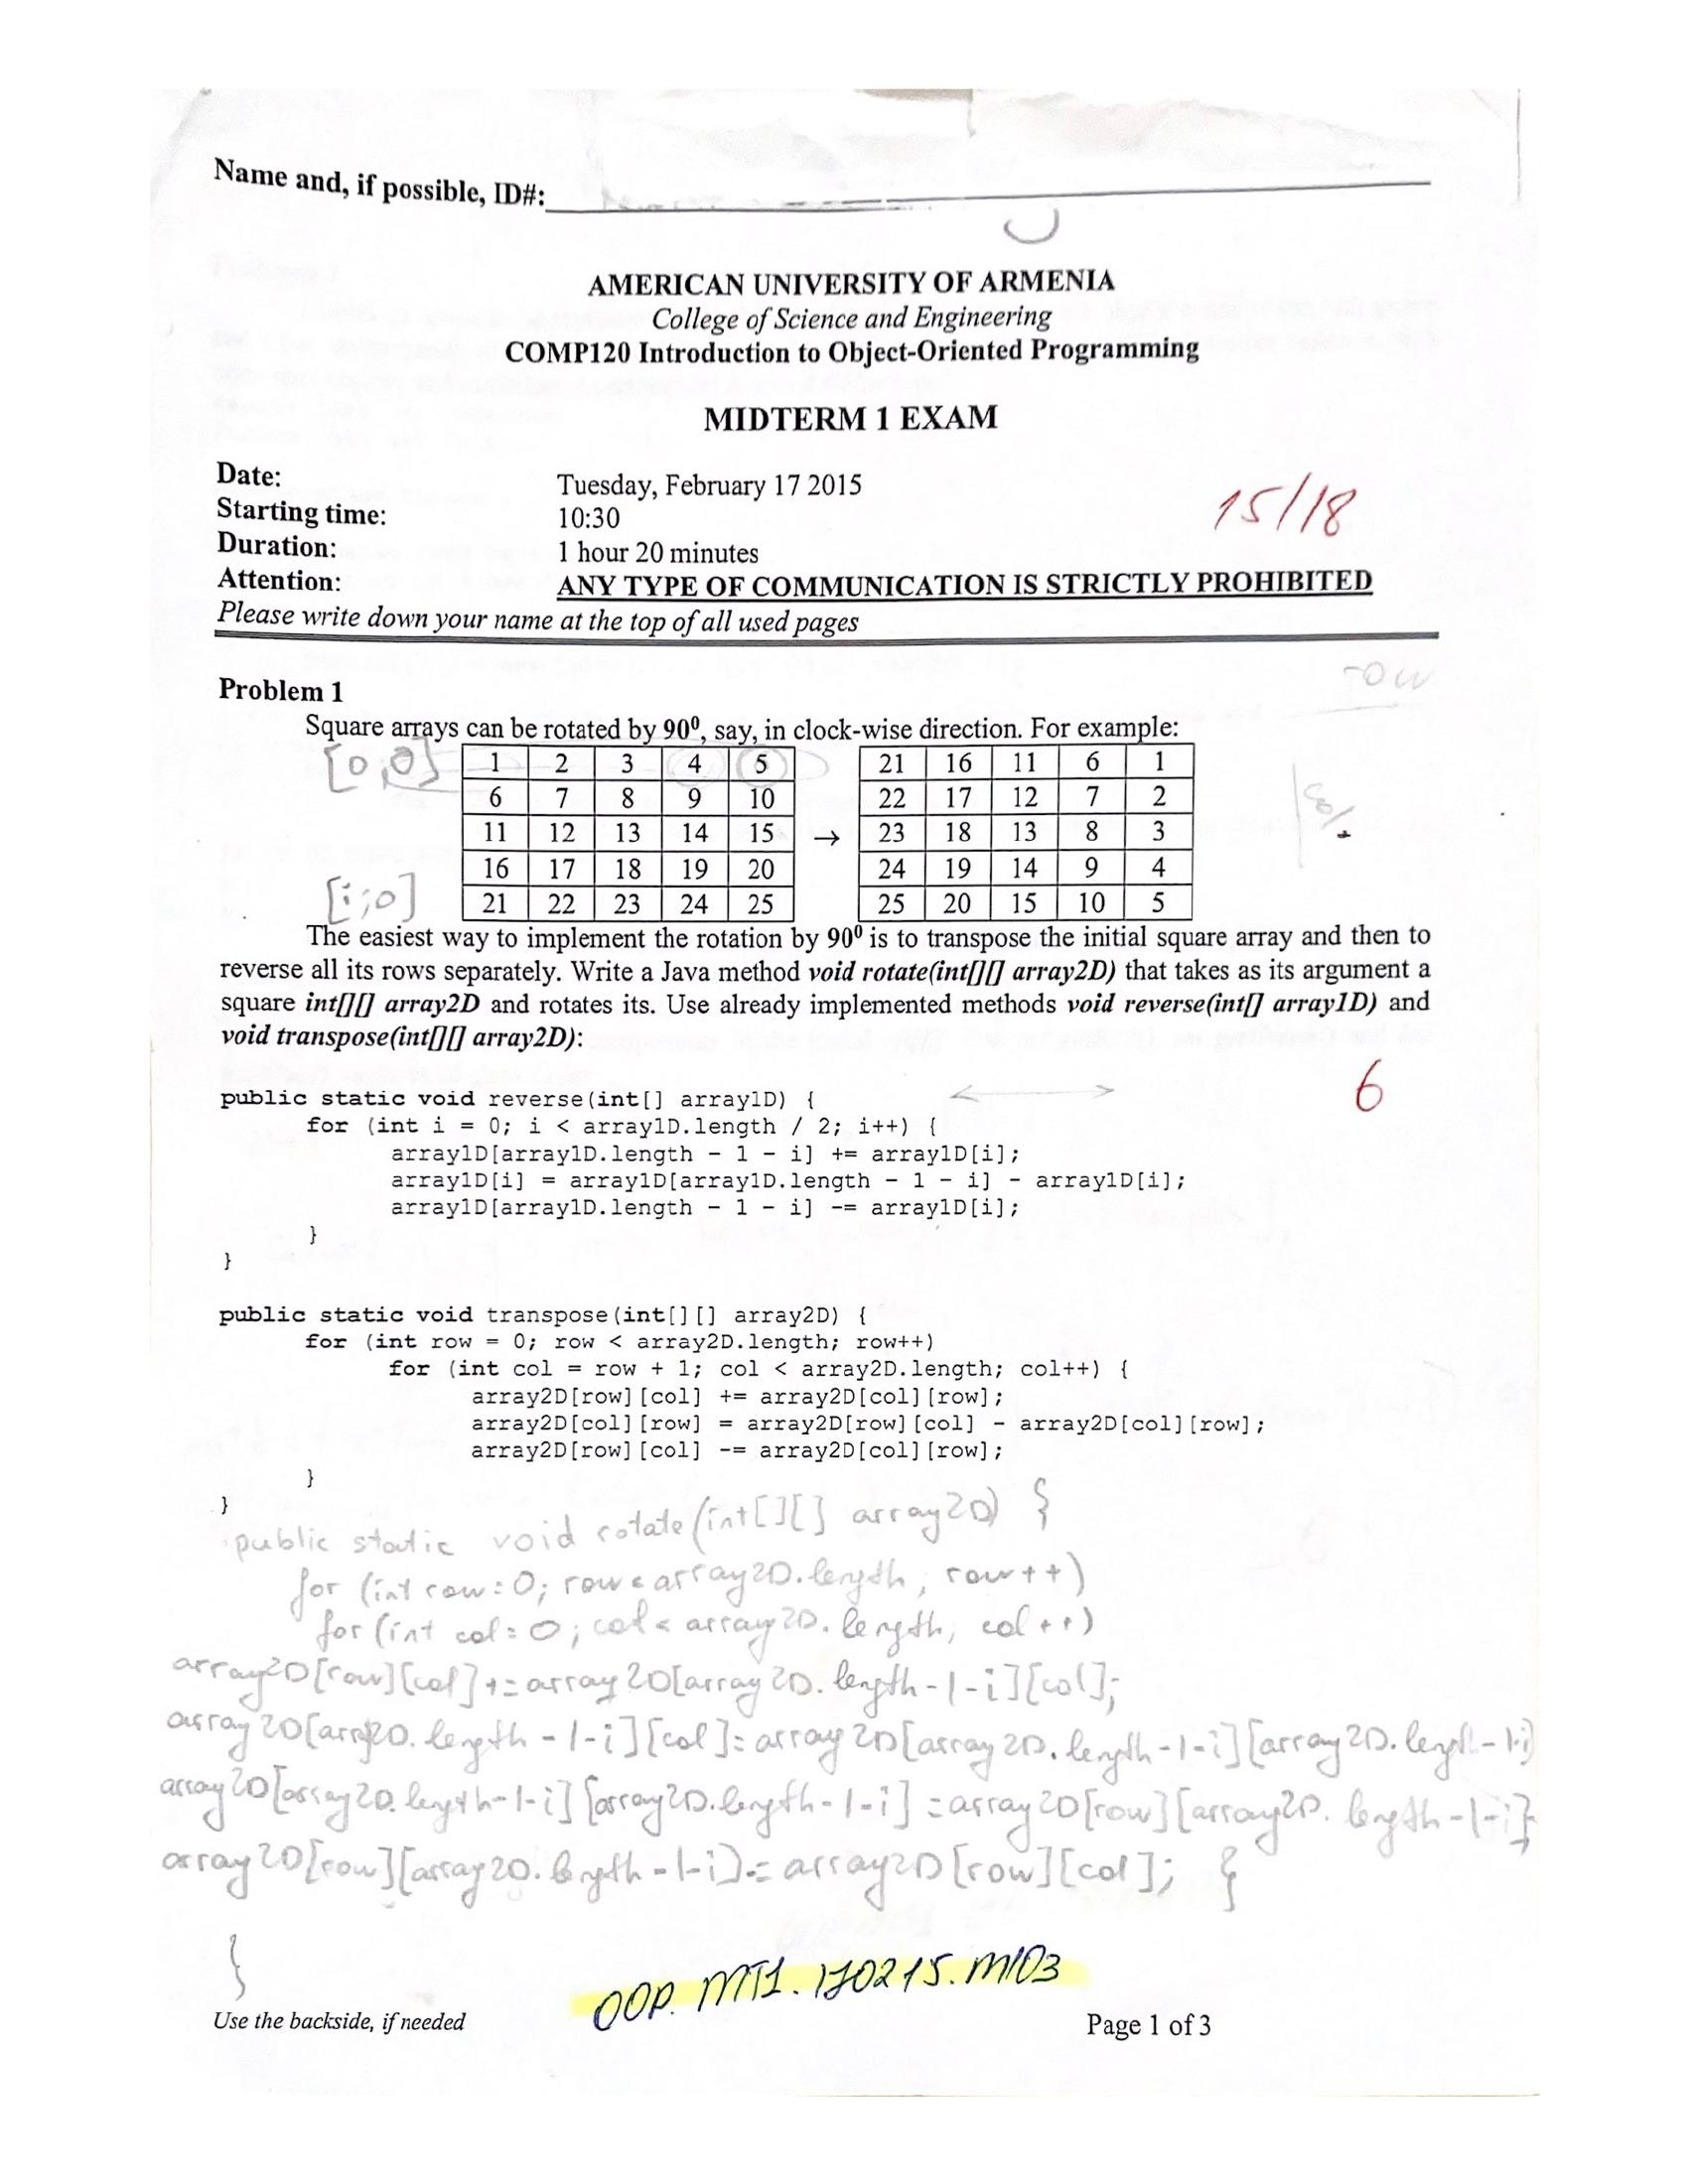 Name and, if possible, ID#:
AMERICAN UNIVERSITY OF ARMENIA
College of Science and Engineering
COMP120 Introduction to Object-Oriented Programming
MIDTERM 1 EXAM
Date: Tuesday, February 17 2015
15/18
Starting time: 10:30
Duration: 1 hour 20 minutes
Attention: ANY TYPE OF COMMUNICATION IS STRICTLY PROHIBITED
Please write down your name at the top of all used pages
row
Problem 1
Square arrays can be rotated by 90⁰, say, in clock-wise direction. For example:
[0,0] 1 2 3 4 5 21 16 11 6 1
6 7 8 9 10 22 17 12 7 2
11 12 13 14 15 → 23 18 13 8 3
16 17 18 19 20 24 19 14 9 4
[i;0] 21 22 23 24 25 25 20 15 10 5
The easiest way to implement the rotation by 90⁰ is to transpose the initial square array and then to
reverse all its rows separately. Write a Java method void rotate(int[][] array2D) that takes as its argument a
square int[][] array2D and rotates its. Use already implemented methods void reverse(int[] array1D) and
void transpose(int[][] array2D):
6
public static void reverse(int[] array1D) {
for (int i = 0; i < array1D.length / 2; i++) {
array1D[array1D.length - 1 - i] += array1D[i];
array1D[i] = array1D[array1D.length - 1 - i] - array1D[i];
array1D[array1D.length - 1 - i] -= array1D[i];
}
}
public static void transpose(int[][] array2D) {
for (int row = 0; row < array2D.length; row++)
for (int col = row + 1; col < array2D.length; col++) {
array2D[row][col] += array2D[col][row];
array2D[col][row] = array2D[row][col] - array2D[col][row];
array2D[row][col] -= array2D[col][row];
}
}
public static void rotate(int[][] array2D) {
for (int row=0; row<array2D.length, row++)
for (int col=0; col<array2D.length, col++)
array2D[row][col]+=array2D[array2D.length-1-i][col];
array2D[arra2D.length-1-i][col]=array2D[array2D.length-1-i][array2D.length-1-i]
array2D[array2D.length-1-i][array2D.length-1-i]=array2D[row][array2D.length-1-i];
array2D[row][array2D.length-1-i]-=array2D[row][col]; }
}
OOP.MT1.170215.M103
Use the backside, if needed Page 1 of 3